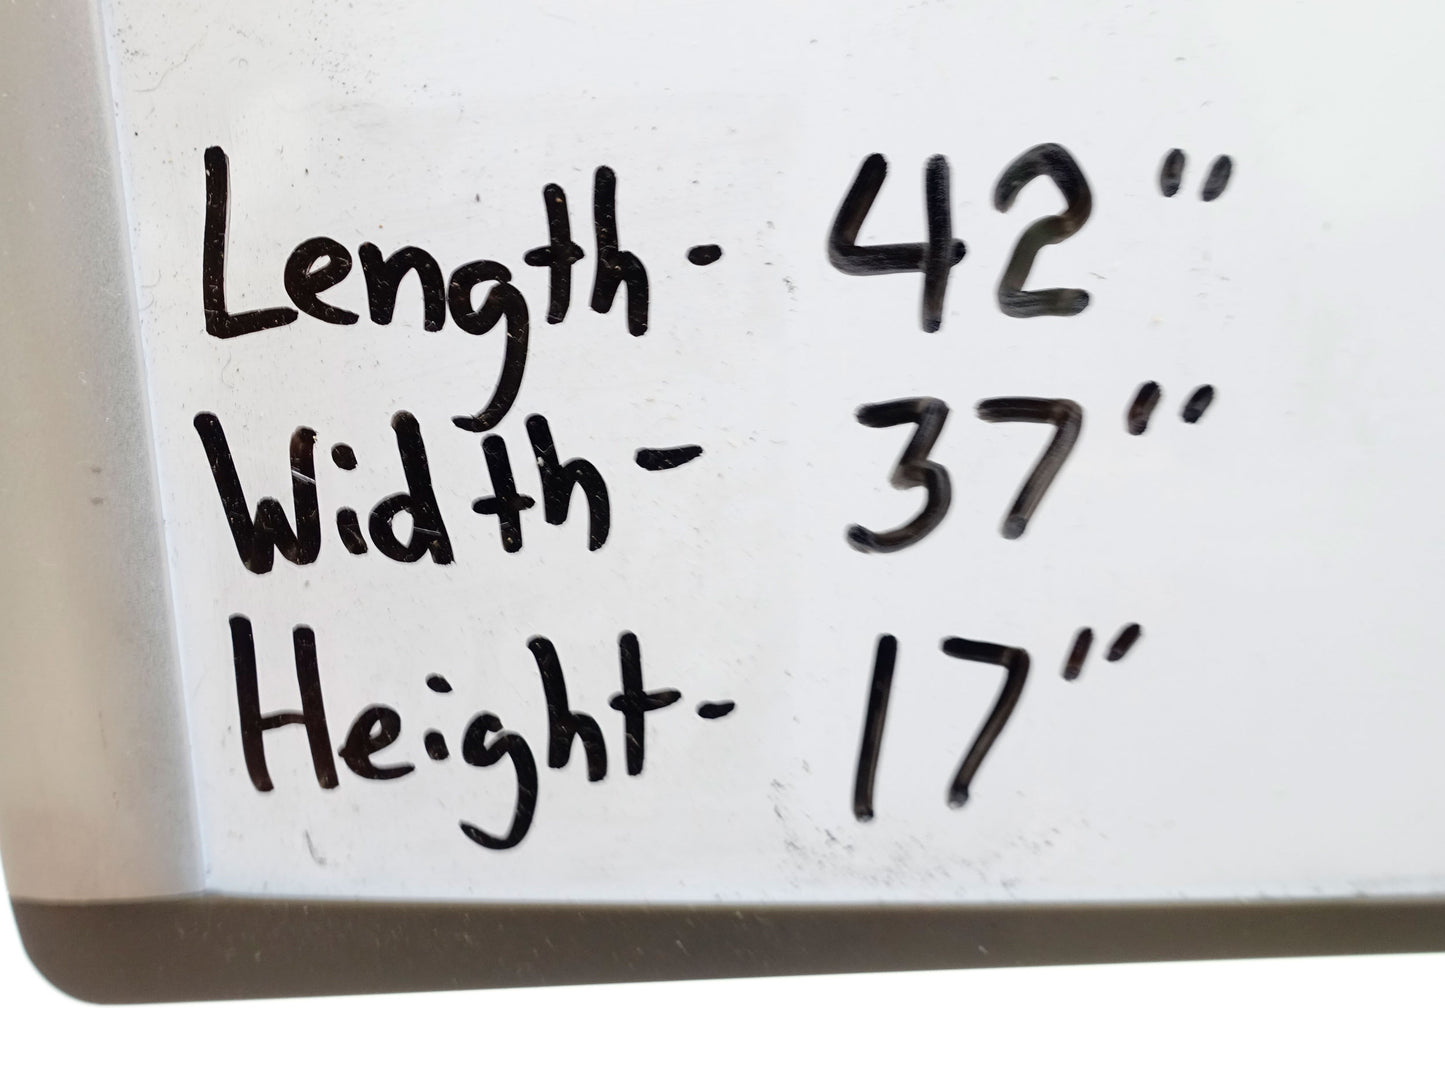 Length- 42"
Width- 37"
Height- 17"